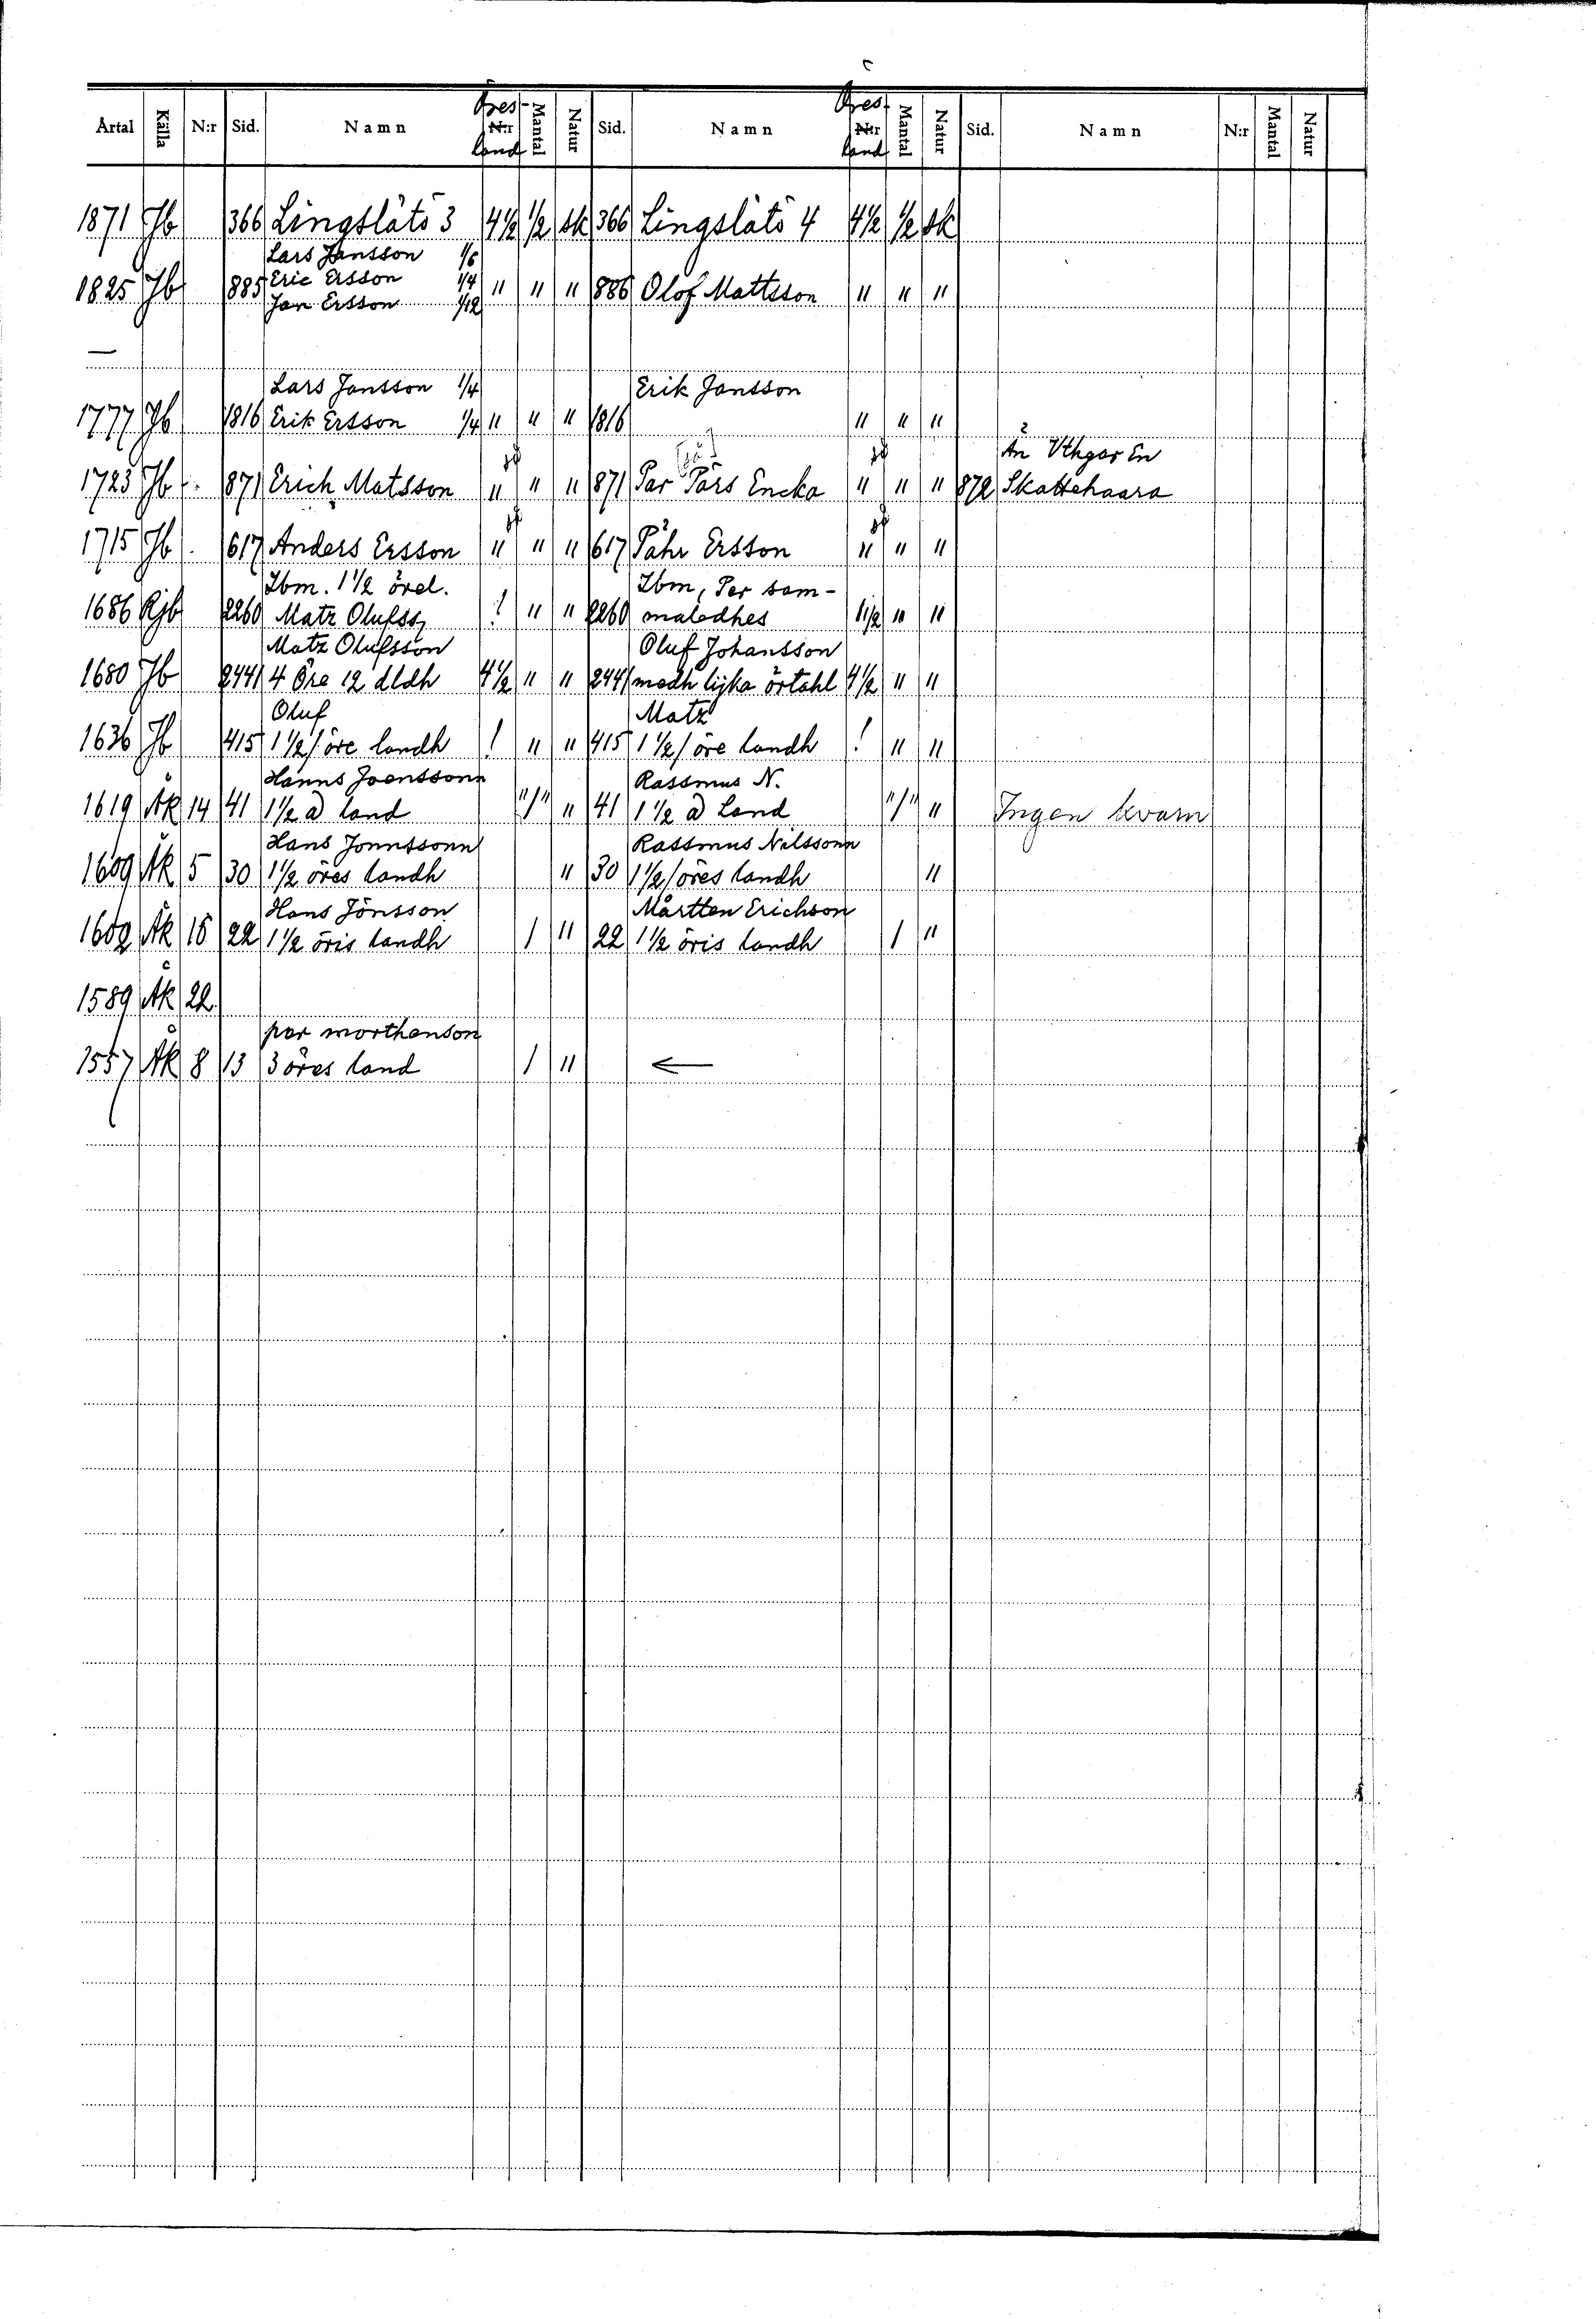 Öres- Öres-
Årtal Källa N:r Sid. Namn N:r Mantal Natur Sid. Namn N:r Mantal Natur Sid. Namn N:r Mantal Natur
land land
1871 Jb 366 Lingslätö 3 4½ ½ sk 366 Lingslätö 4 4½ ½ sk
Lars Jansson 1/6
1825 Jb 885 Eric Ersson 1/4 " " " 886 Olof Mattsson " " "
Jan Ersson 1/12
—
Lars Jansson 1/4 Erik Jansson
1777 Jb 1816 Erik Ersson 1/4 " " " 1816 " " "
Än Vthgar En
1723 Jb 871 Erich Matsson " " " 871 Par Pärs Encka " " " 872 Skattehaara
1715 Jb 617 Anders Ersson " " " 617 Påhr Ersson " " "
Ibm. 1½ örel. Ibm, Per sam-
1686 Rjb 2260 Matz Olufss. ! " " 2260 maledhes 1½ " "
Matz Olufsson Oluf Johansson
1680 Jb 2441 4 Öre 12 dldh 4½ " " 2441 medh lijka örtahl 4½ " "
Oluf Matz
1636 Jb 415 1½/öre landh ! " " 415 1½/öre landh ! " "
Hanns Joenssonn Rassmus N.
1619 Åk 14 41 1½ ö land "/" " 41 1½ ö Land "/" " Ingen kvarn
Hans Jonnssonn Rassmus Nilssonn
1609 Åk 5 30 1½ öres landh " 30 1½/öres landh "
Hans Jönsson Mårtten Erichson
1602 Åk 15 22 1½ öris landh / " 22 1½ öris landh / "
1589 Åk 22
per morthenson
1557 Åk 8 13 3 öres land / " ←